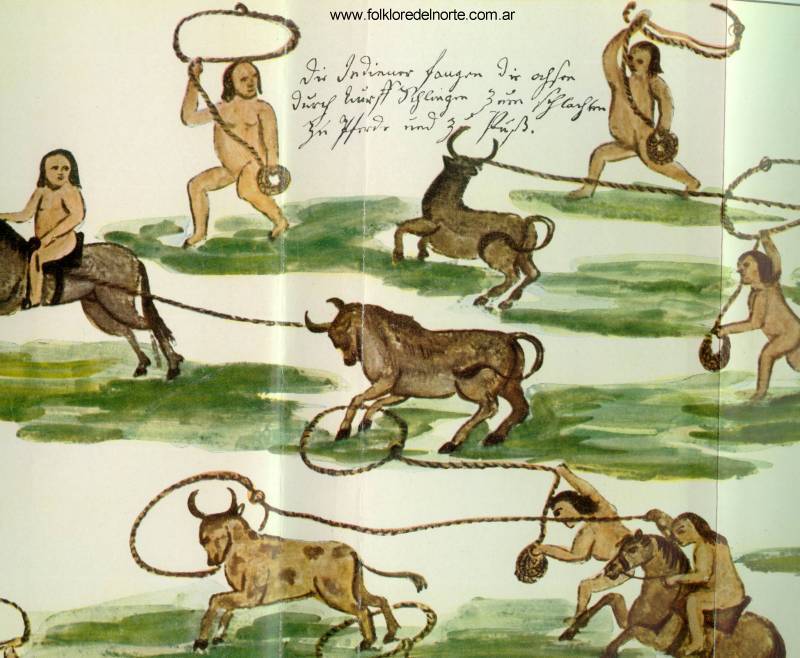 www.folkloredelnorte.com.ar
Die Indianer fangen die ochsen
durch Wurff Schlingen zum schlachten
zu Pferde und zu Fuß.